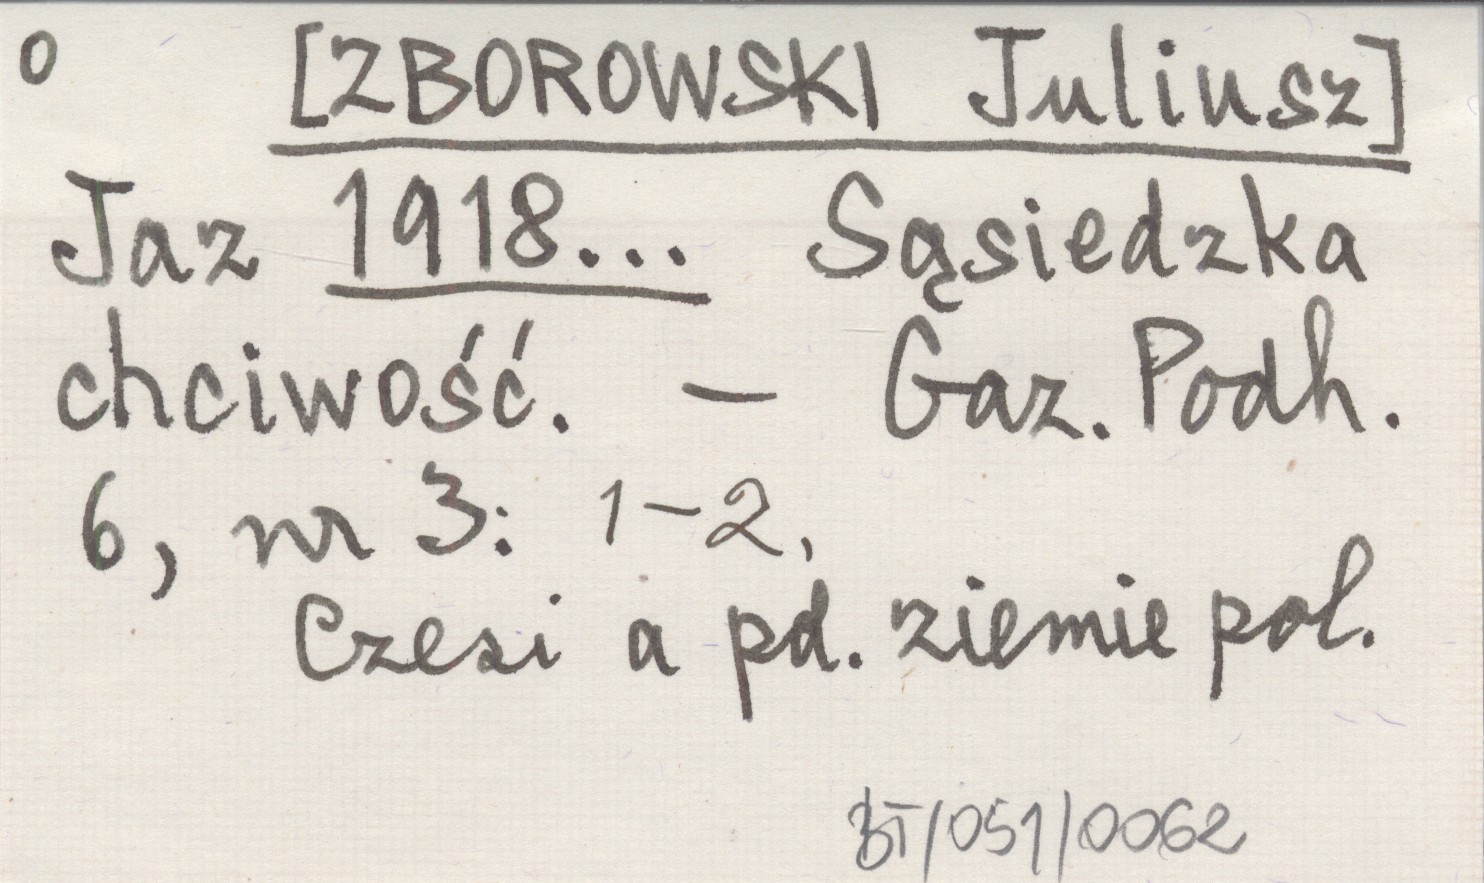 o [ZBOROWSKI Juliusz]
Jaz 1918... Sąsiedzka
chciwość. — Gaz. Podh.
6, nr 3: 1-2,
Czesi a pd. ziemie pol.
BT/051/0062